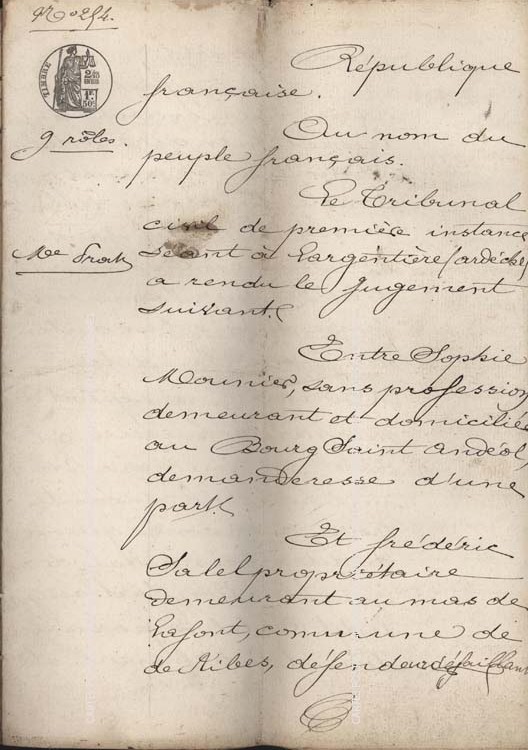 No 254.
TIMBRE
9 rôles.
République
française.
Au nom du
peuple français.
Le Tribunal
civil de première instance
séant à Largentière (ardèche)
Me
a rendu le Jugement
suivant.
Entre Sophie
Mounier, sans profession
demeurant et domiciliée
au Bourg Saint andéol,
demanderesse d'une
part.
Et frédéric
Salel propriétaire
demeurant au mas de
Lafont, commune de
de Ribes, défendeur défaillant